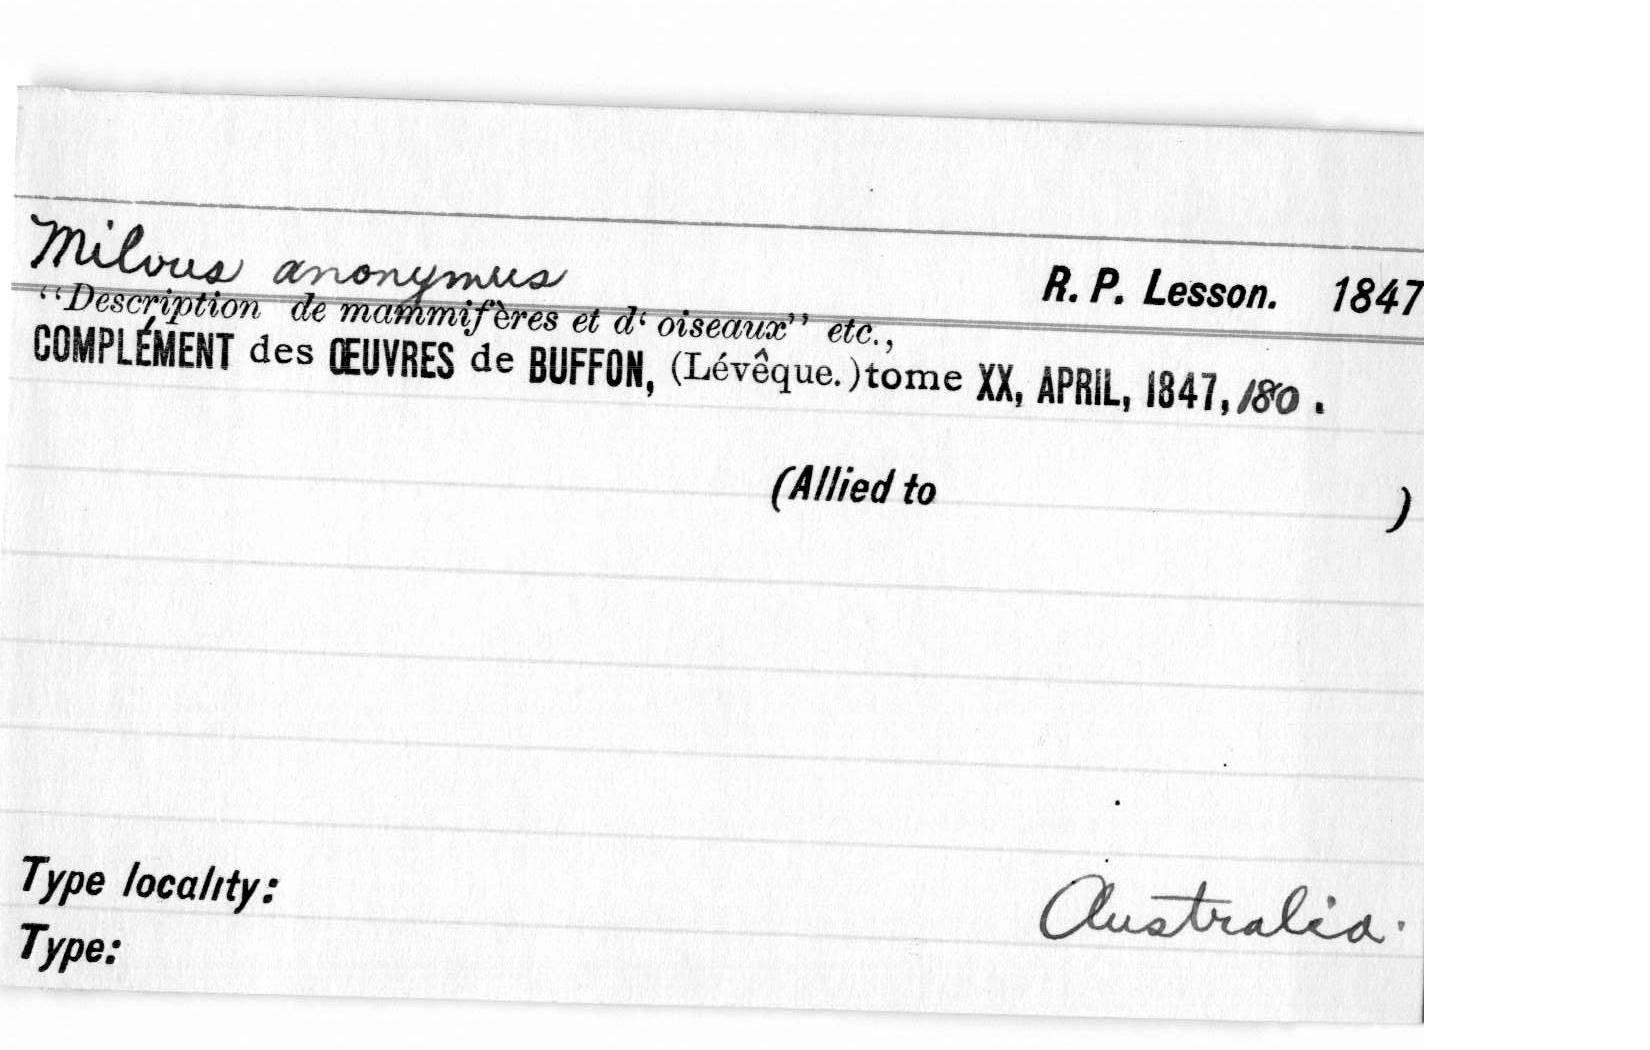 Milvus anonymus R. P. Lesson. 1847
“Description de mammifères et d‘ oiseaux” etc.,
COMPLÉMENT des ŒUVRES de BUFFON, (Lévêque.) tome XX, APRIL, 1847, 180 .
(Allied to )
Type locality: Australia.
Type: